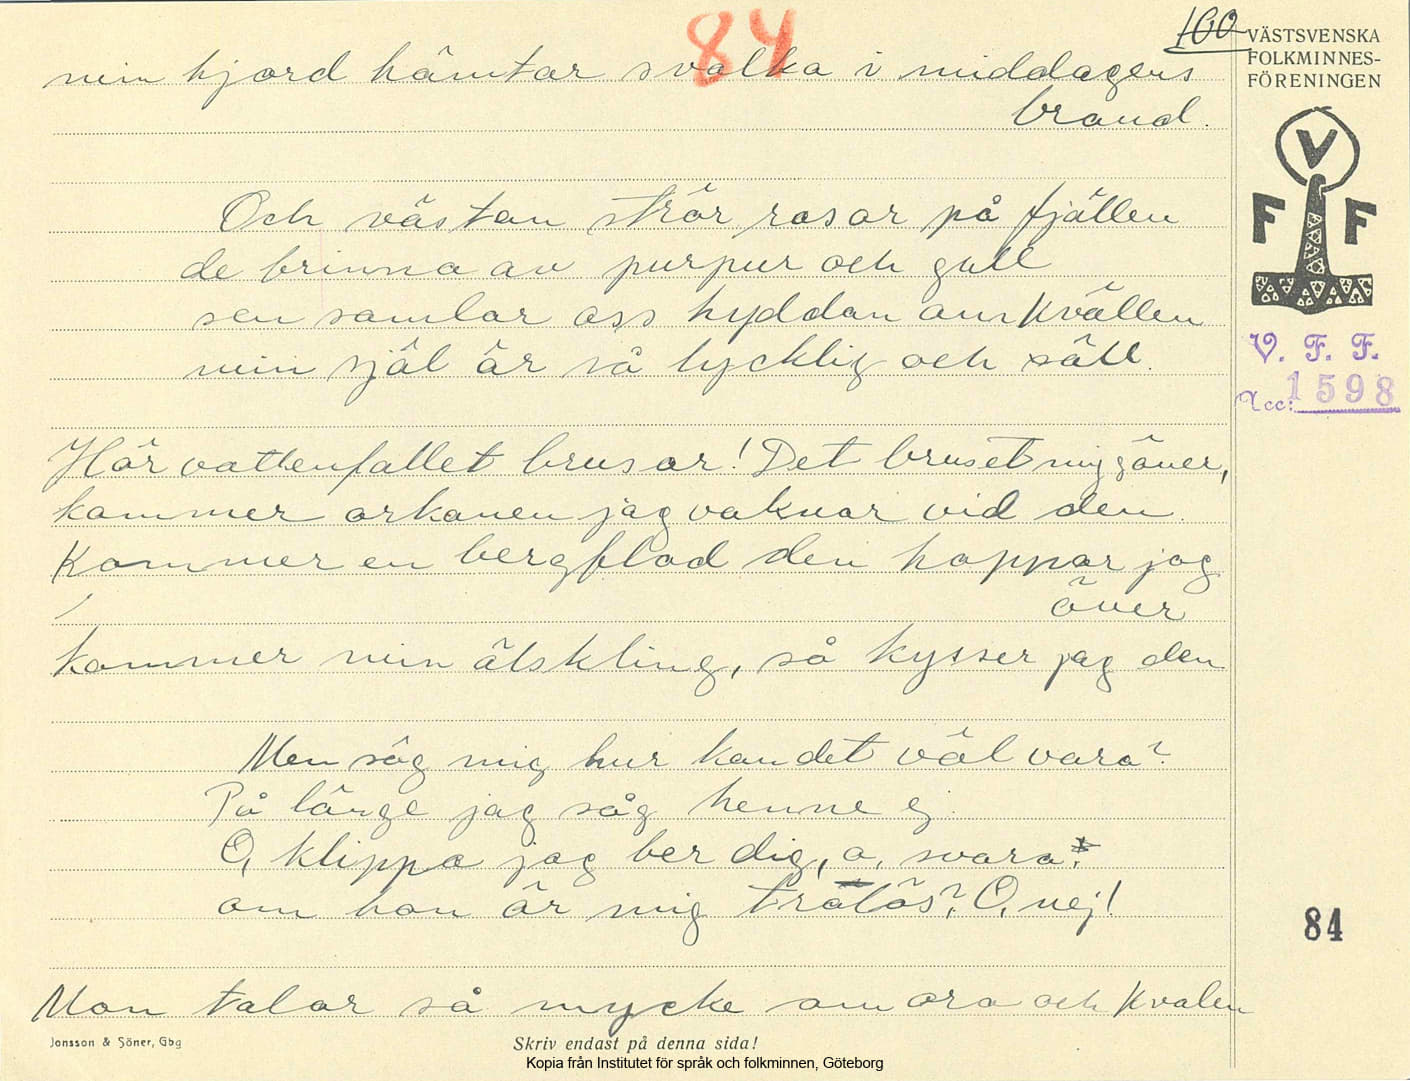 84
100
VÄSTSVENSKA
FOLKMINNES-
FÖRENINGEN
min hjord hämtar svalka i middagens
brand.
Och västan strör rosor på fjällen
de brinna av purpur och gull
sen samlar oss hyddan om kvällen
min själ är så lycklig och säll.
Hör vattenfallet brusar! Det bruset mig gäver,
kommer orkanen jag vaknar vid den.
Kommer en bergflod den hoppar jag
över
kommer min älskling, så kysser jag den
Men säg mig hur kan det väl vara?
På länge jag såg henne ej.
O, klippa jag ber dig, o, svara?
om hon är mig trolös? O, nej!
Mon talar så mycke om ora och kvalen
V
F F
V. F. F.
Acc: 1598
84
Jonsson & Söner, Gbg
Skriv endast på denna sida!
Kopia från Institutet för språk och folkminnen, Göteborg